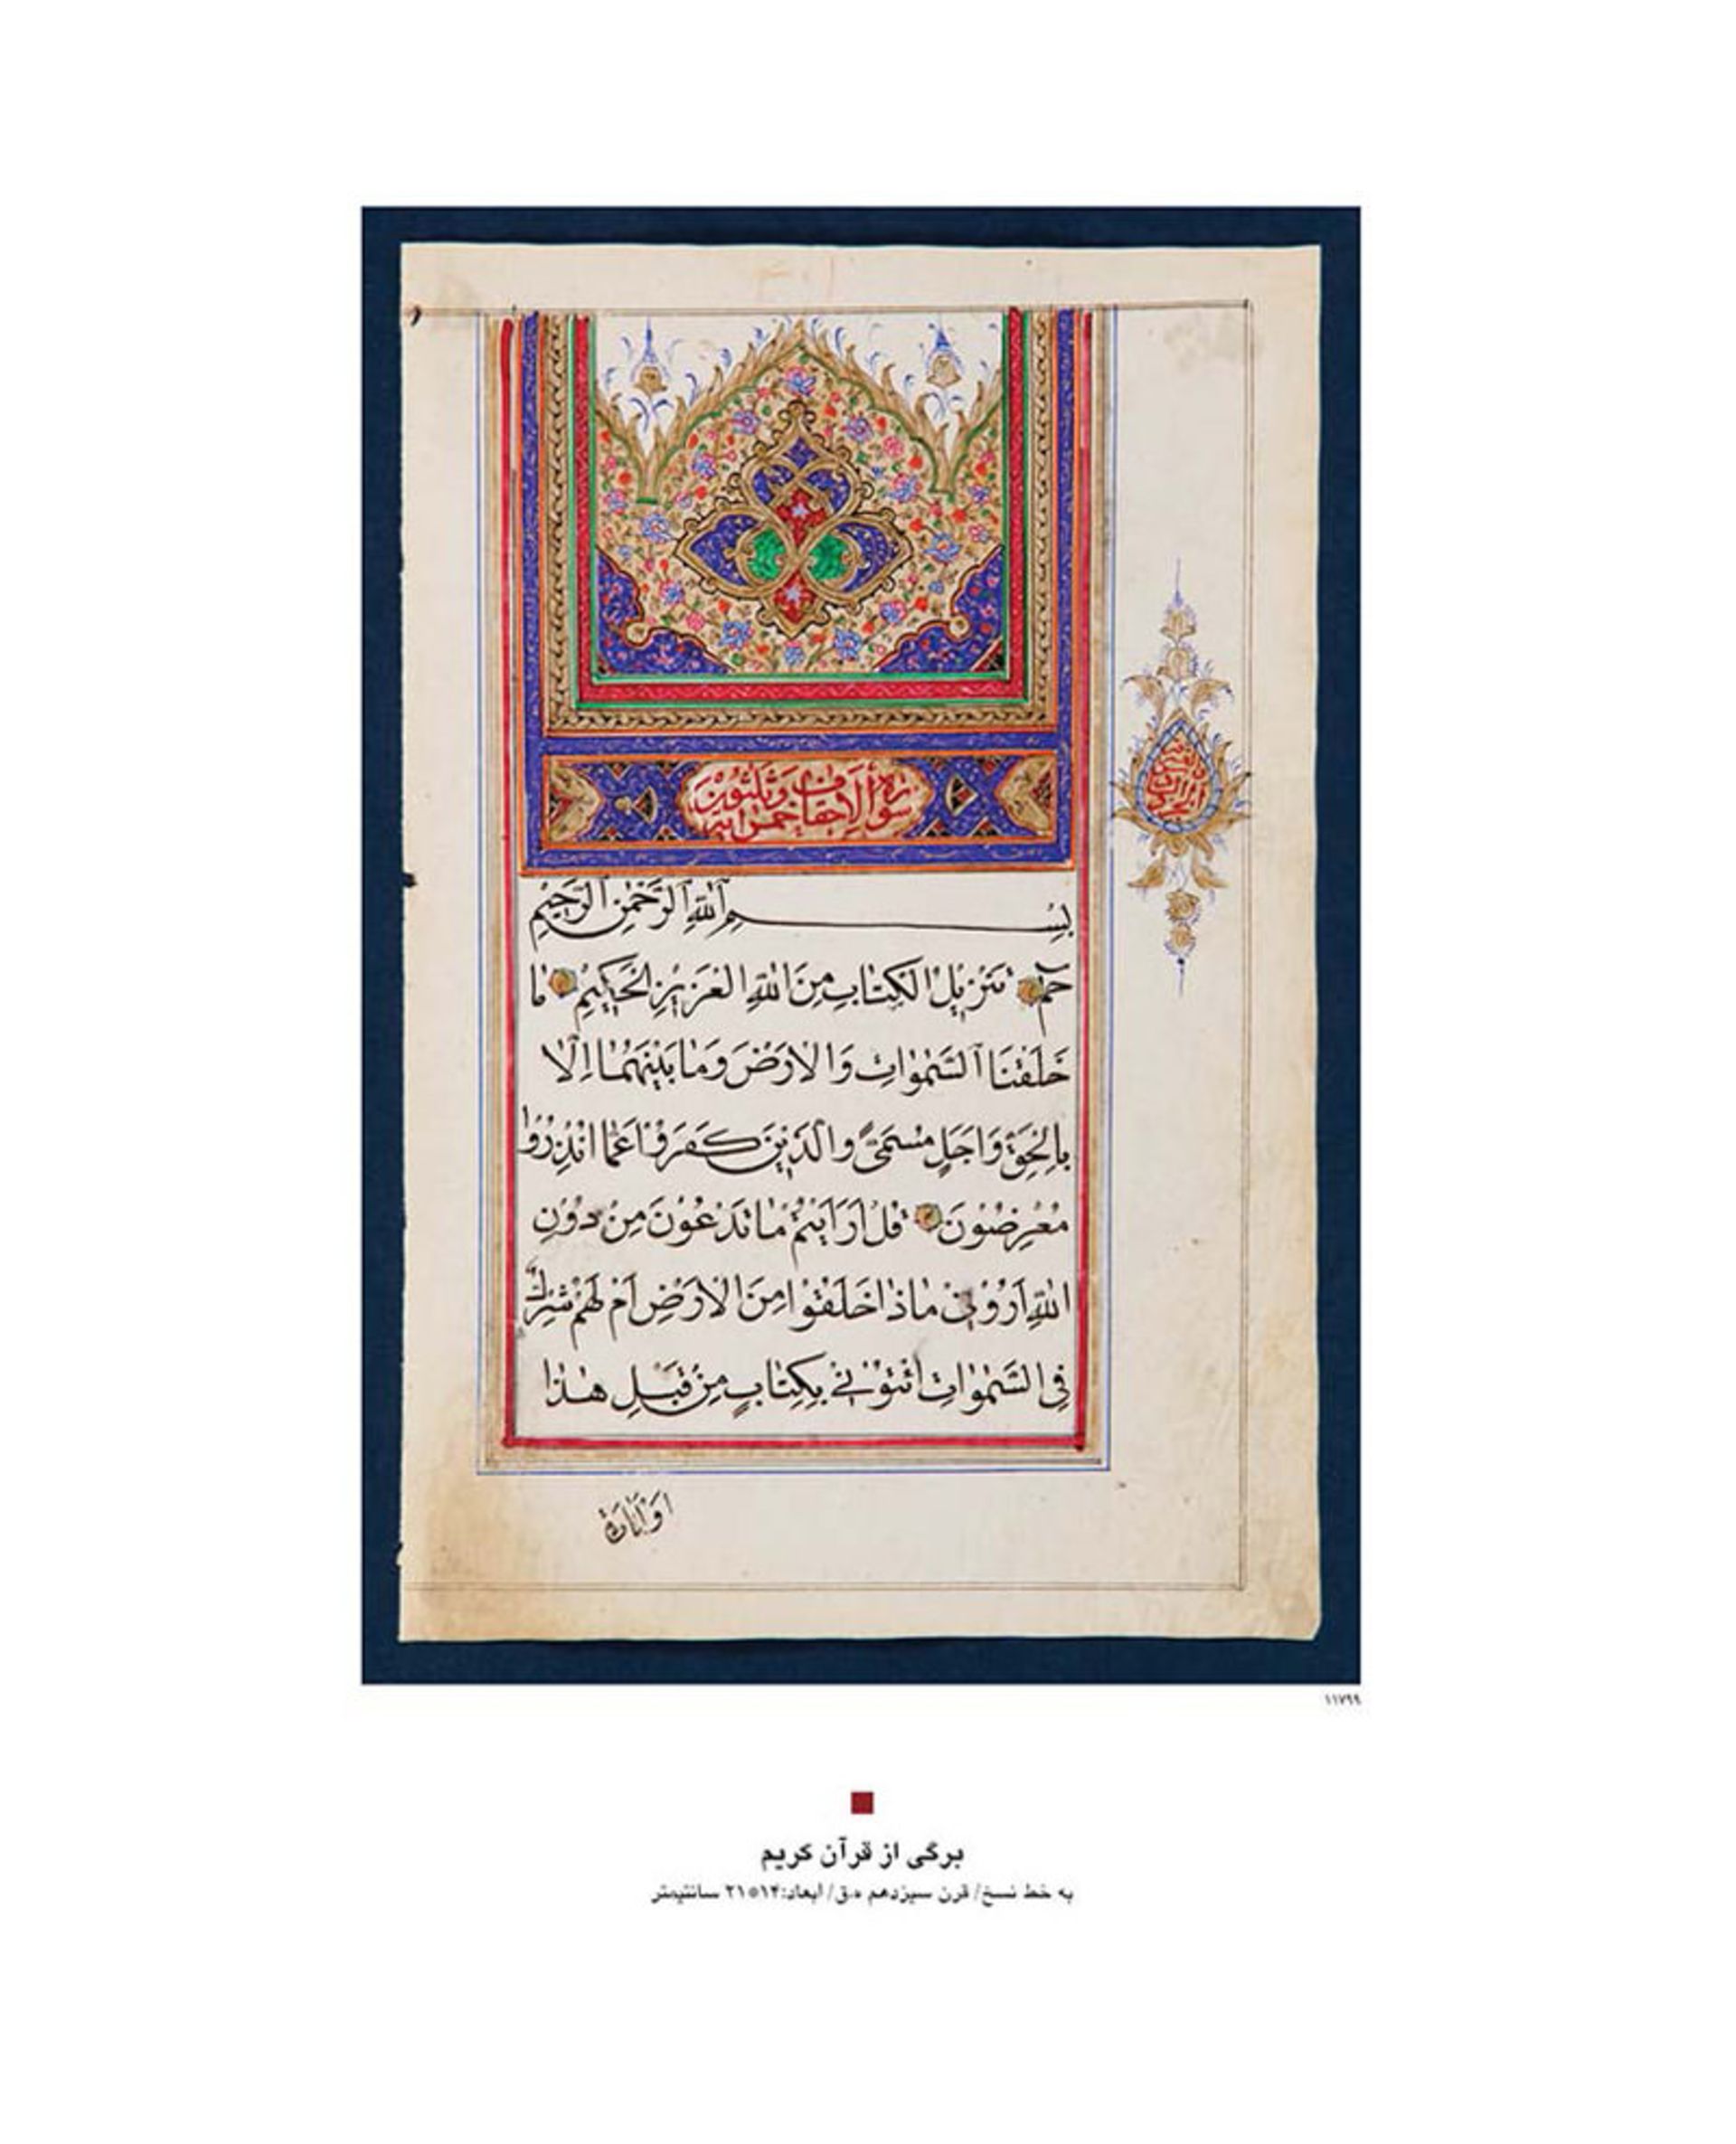 سورة الاحقاف خمس وثلثون اية
بِسْمِ اللهِ الرَّحْمٰنِ الرَّحِيمِ
حٰمٓ تَنْزِيلُ الْكِتَابِ مِنَ اللهِ الْعَزِيزِ الْحَكِيمِ مَا
خَلَقْنَا السَّمٰوَاتِ وَالْاَرْضَ وَمَا بَيْنَهُمَا اِلَّا
بِالْحَقِّ وَاَجَلٍ مُسَمًّى وَالَّذِينَ كَفَرُوا عَمَّا اُنْذِرُوا
مُعْرِضُونَ قُلْ اَرَاَيْتُمْ مَا تَدْعُونَ مِنْ دُونِ
اللهِ اَرُونِي مَاذَا خَلَقُوا مِنَ الْاَرْضِ اَمْ لَهُمْ شِرْكٌ
فِي السَّمٰوَاتِ ائْتُونِي بِكِتَابٍ مِنْ قَبْلِ هٰذَا
اَوْ اَثَارَةٍ
۱۱۷۹۹
برگی از قرآن کریم
به خط نسخ/ قرن سیزدهم ه.ق/ ابعاد:۱۴*۲۱ سانتیمتر